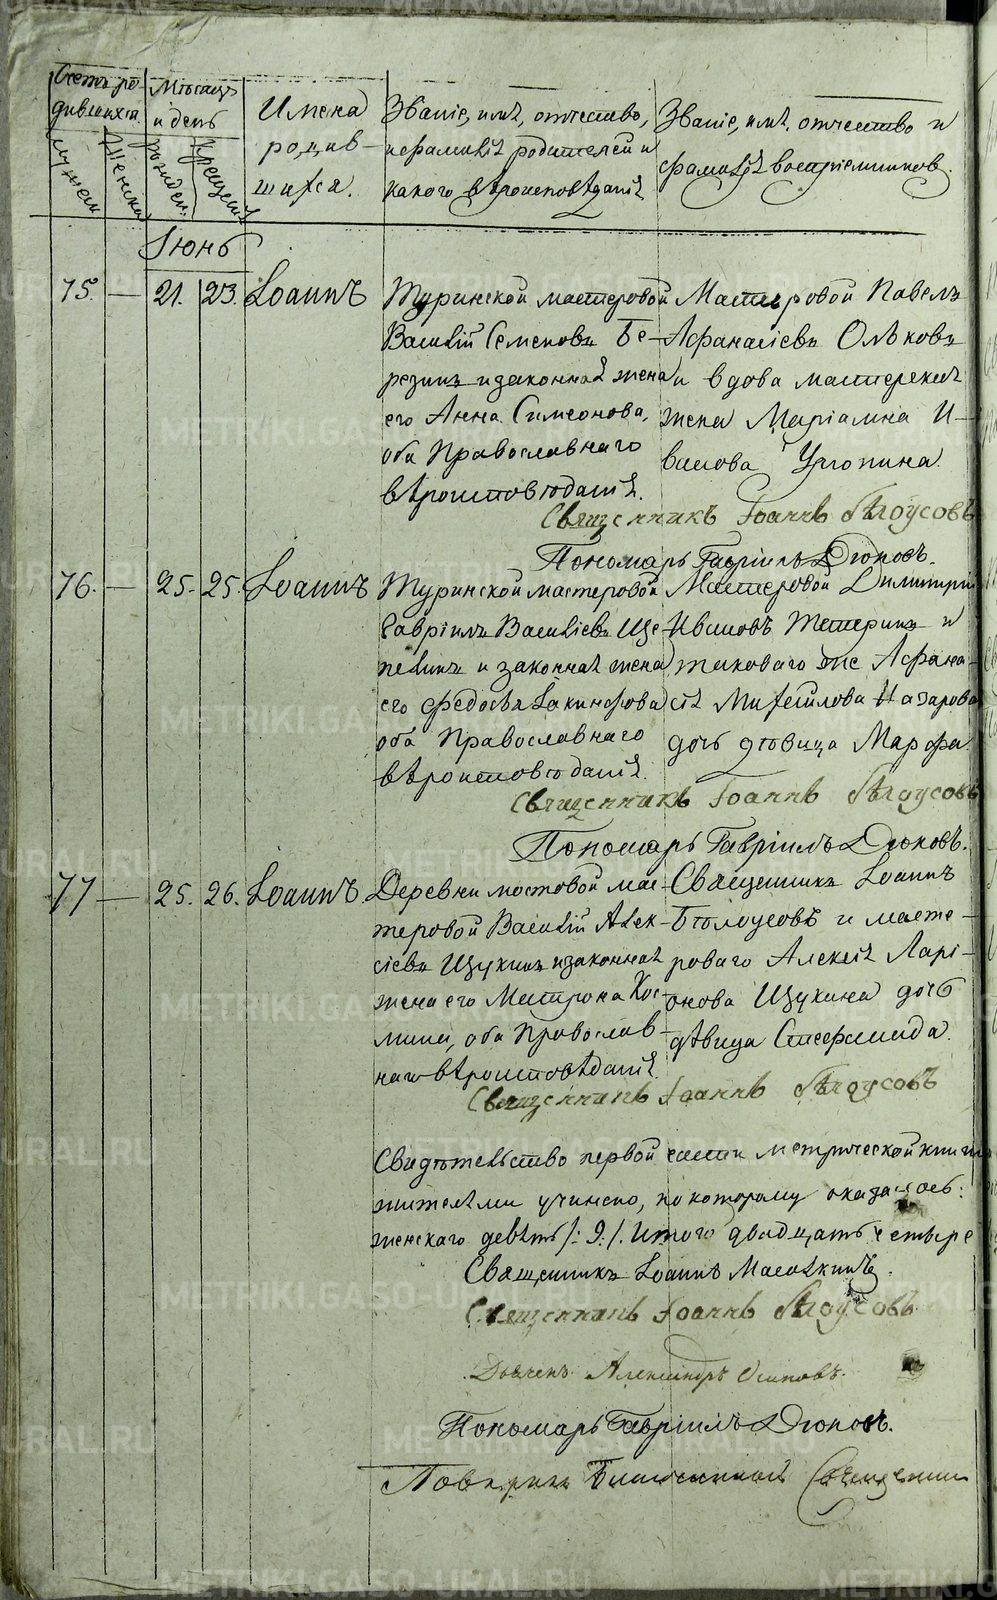 Счетъ ро-
дившихся.
мужеск.
женска
Мѣсяцъ
и день
рожден.
крещенія
Имена
родив-
шихся.
Званіе, имя, отчество,
и фамилія родителей и
какого вѣроисповѣданія
Званіе, имя, отчество и
фамилія воспріемниковъ.
Іюнь
75. — 21. 23. Іоаннъ
Туринской мастеровой
Василій Семеновъ Бе-
резинъ и законная жена
его Анна Симеонова,
оба Православнаго
вѣроисповѣданія.
Мастеровой Павелъ
Афанасіевъ Олѣковъ
и вдова мастерская
жена Маріамна И-
ванова Утопина.
Священникъ Іоаннъ Бѣлоусовъ
Пономарь Гавріилъ Дюковъ.
76. — 25. 25. Іоаннъ
Туринской мастеровой
Гавріилъ Василіевъ Ще-
пелинъ и законная жена
его Федосья Іакинфова
оба Православнаго
вѣроисповѣданія.
Мастеровой Димитрій
Ивановъ Тетеринъ и
таковаго же Афана-
сія Михайлова Назарова
дочь дѣвица Марфа
Священникъ Іоаннъ Бѣлоусовъ
Пономарь Гавріилъ Дюковъ.
77 — 25. 26. Іоаннъ
Деревни мостовой мас-
теровой Василій Алек-
сіевъ Щукинъ и законная
жена его Матрона Кос-
мина, оба Православ-
наго вѣроисповѣданія
Священникъ Іоаннъ
Бѣлоусовъ и масте-
роваго Алексія Ларі-
онова Щукина дочь
дѣвица Стефанида.
Священникъ Іоаннъ Бѣлоусовъ
Свидѣтельство первой части метрической книги
жителями учинено, по которому оказалось:
женскаго девять /: 9. /. Итого двадцать четыре
Священникъ Іоаннъ Масалкинъ.
Священникъ Іоаннъ Бѣлоусовъ.
Дьячекъ Александръ Осиповъ.
Пономарь Гавріилъ Дюковъ.
Повѣрялъ Благочинной Священник